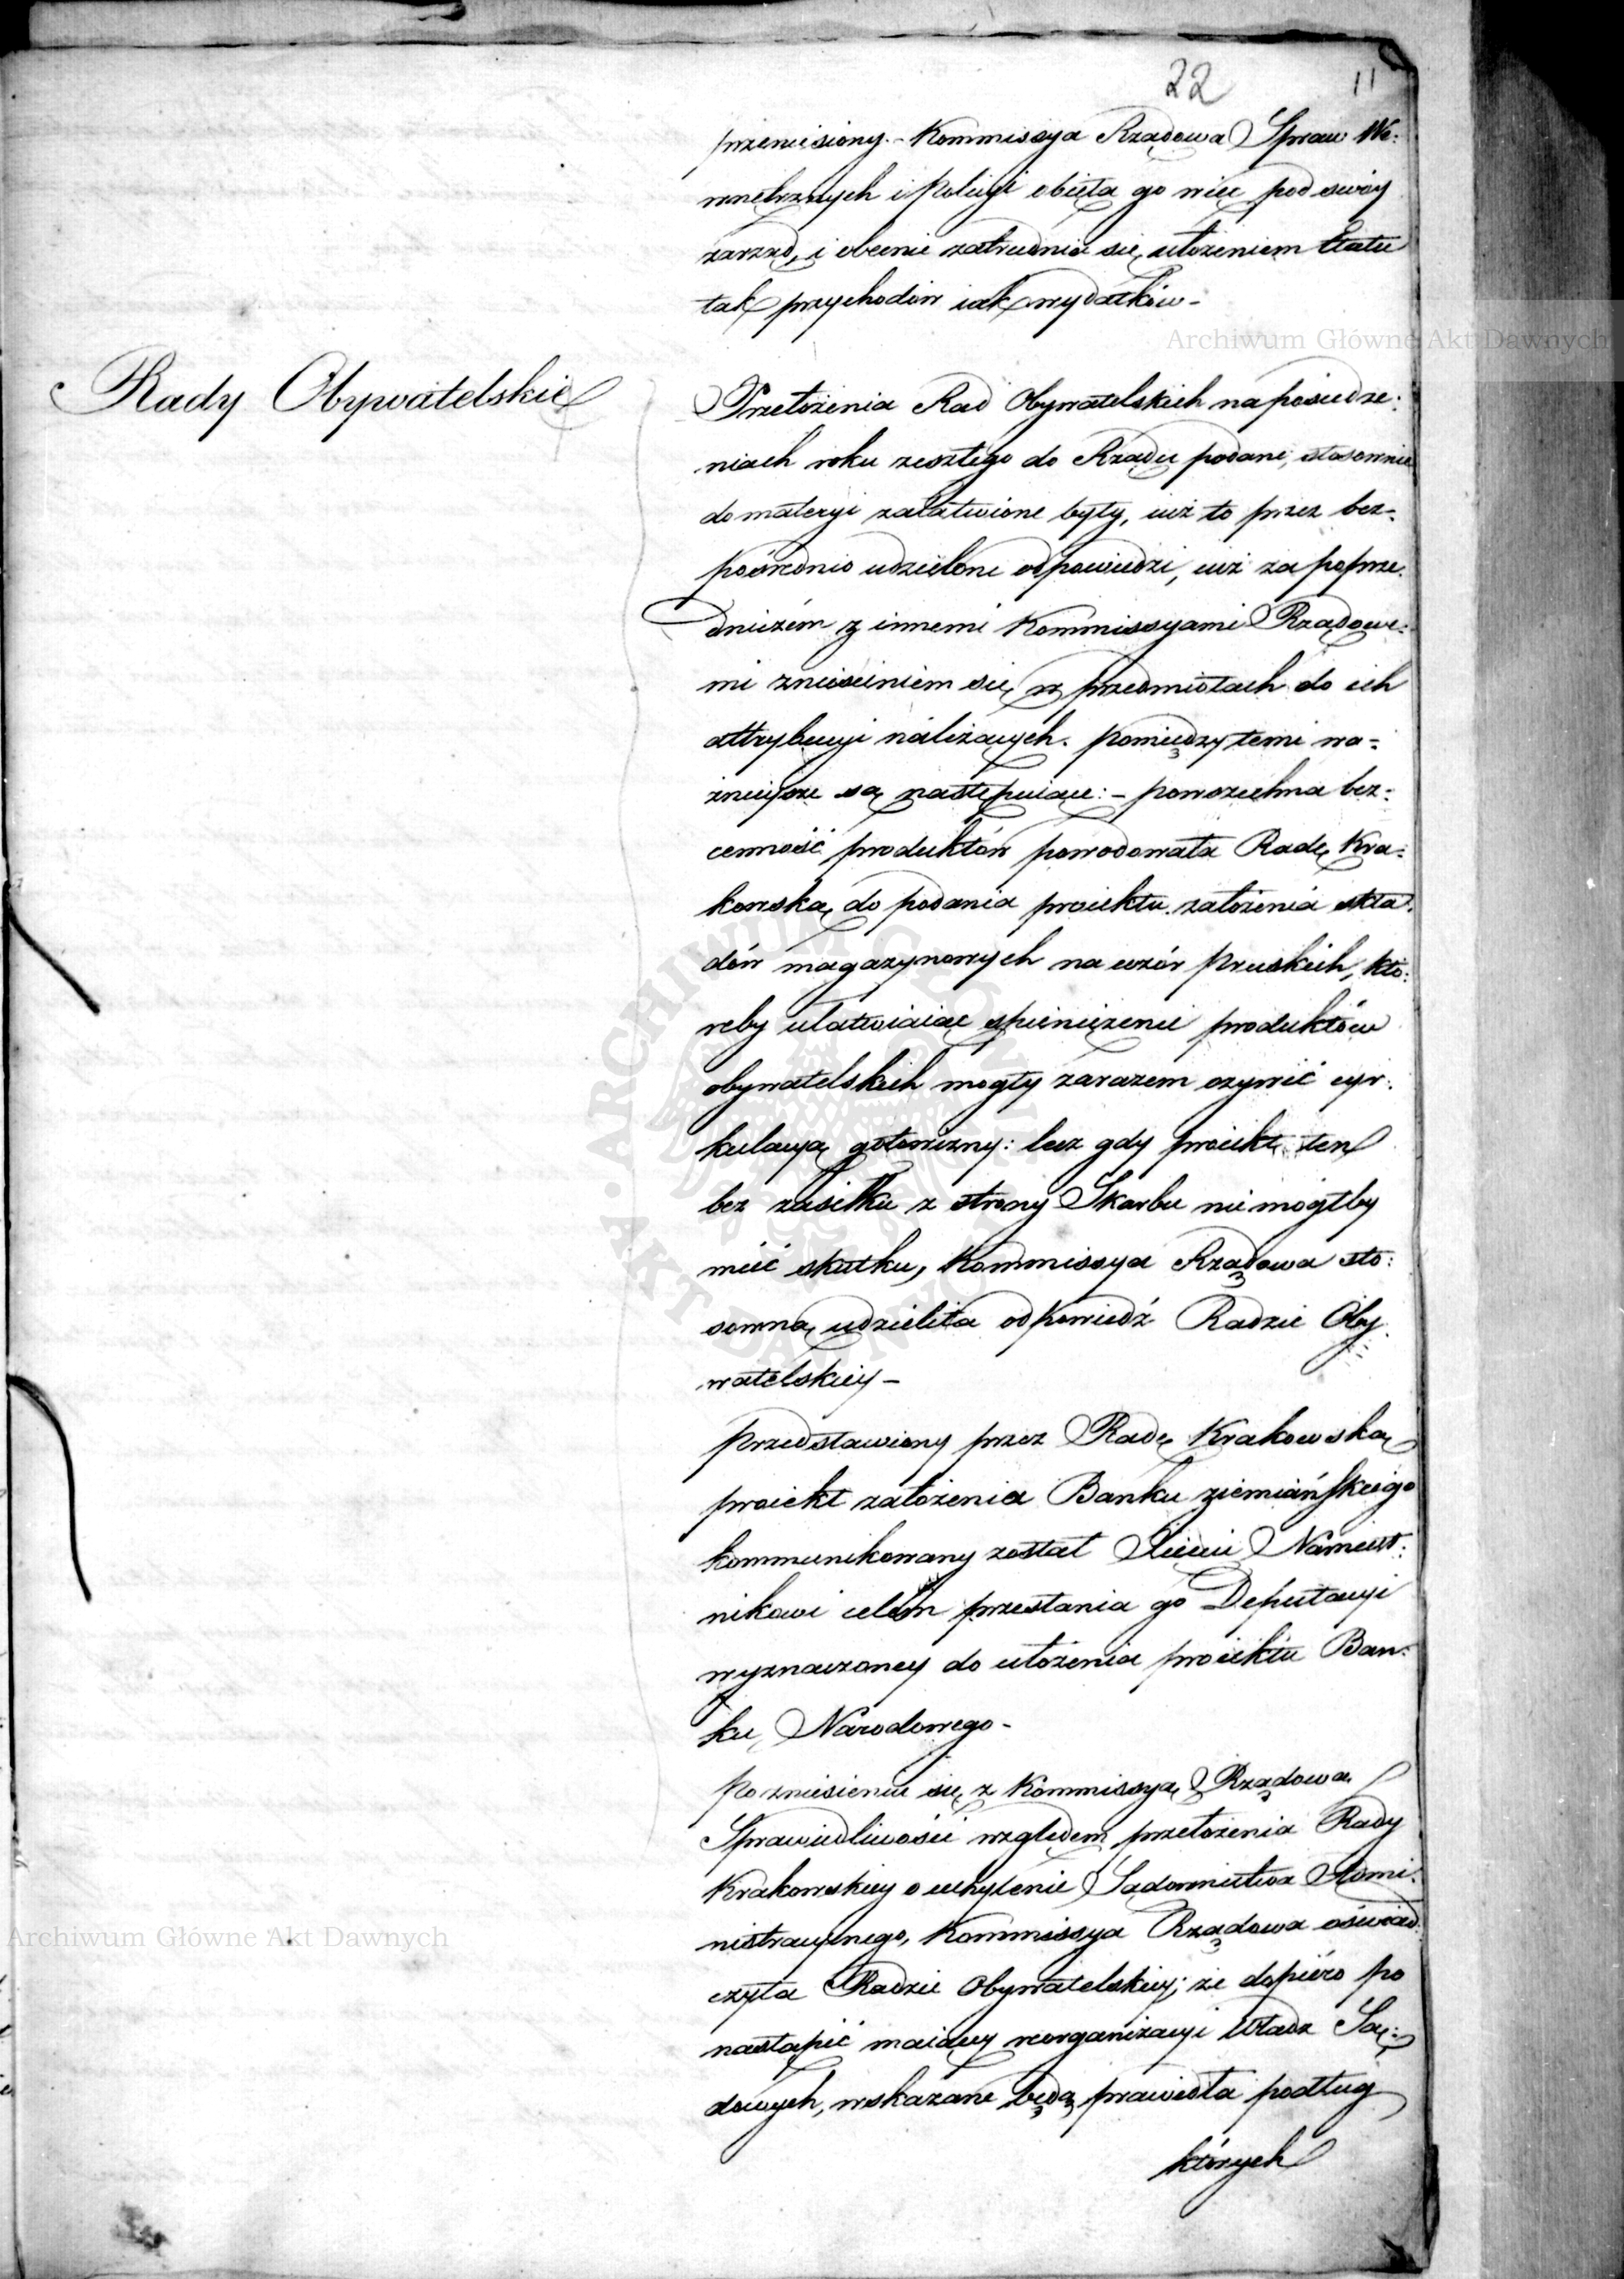 22 11
przeniesiony. - Kommissya Rządowa Spraw We:
wnętrznych i Policyi obięła go więc pod swóy
zarząd, i obecnie zatrudnia się ułożeniem Etatu
tak przychodów iak wydatków -
Rady Obywatelskie
Przełożenia Rad Obywatelskich na posiedze:
niach roku zeszłego do Rządu podane, stosownie
do materyi załatwione były, iuż to przez bez-
pośrednio udzielone odpowiedzi, iuż za poprze:
dniczém z innemi Kommissyami Rządowe:
mi zniesieniem się w przedmiotach do ich
attrybucyi należących. Pomiędzy temi wa-
żnieysze są następuiące: - powszechna bez-
cenność produktów powodowała Radę Kra-
kowską do podania proiektu założenia skła:
dów magazynowych na wzór Pruskich, któ:
reby ułatwiaiąc spieniężenie produktów
obywatelskich mogły zarazem ożywić cyr:
kulacyą gotowizny: lecz gdy proiekt ten
bez zasiłku z strony Skarbu nie mógłby
mieć skutku, Kommissya Rządowa sto:
sowną udzieliła odpowiedź Radzie Oby:
watelskiey -
Przedstawiony przez Radę Krakowską
proiekt założenia Banku ziemiańskiego
kommunikowany został Xięciu Namiest:
nikowi celem przesłania go Deputacyi
wyznaczoney do ułożenia proiektu Ban:
ku Narodowego -
Po zniesieniu się z Kommissyą Rządową
Sprawiedliwości względem przełożenia Rady
Krakowskiey o uchylenie Sądownictwa Admi:
nistracyinego, Kommissya Rządowa oświad:
czyła Radzie Obywatelskiey; że dopiéro po
nastąpić maiącey reorganizacyi Władz Są:
dowych, wskazane będą prawidła podług
których
Archiwum Główne Akt Dawnych
Archiwum Główne Akt Dawnych
ARCHIWUM GŁÓWNE AKT DAWNYCH